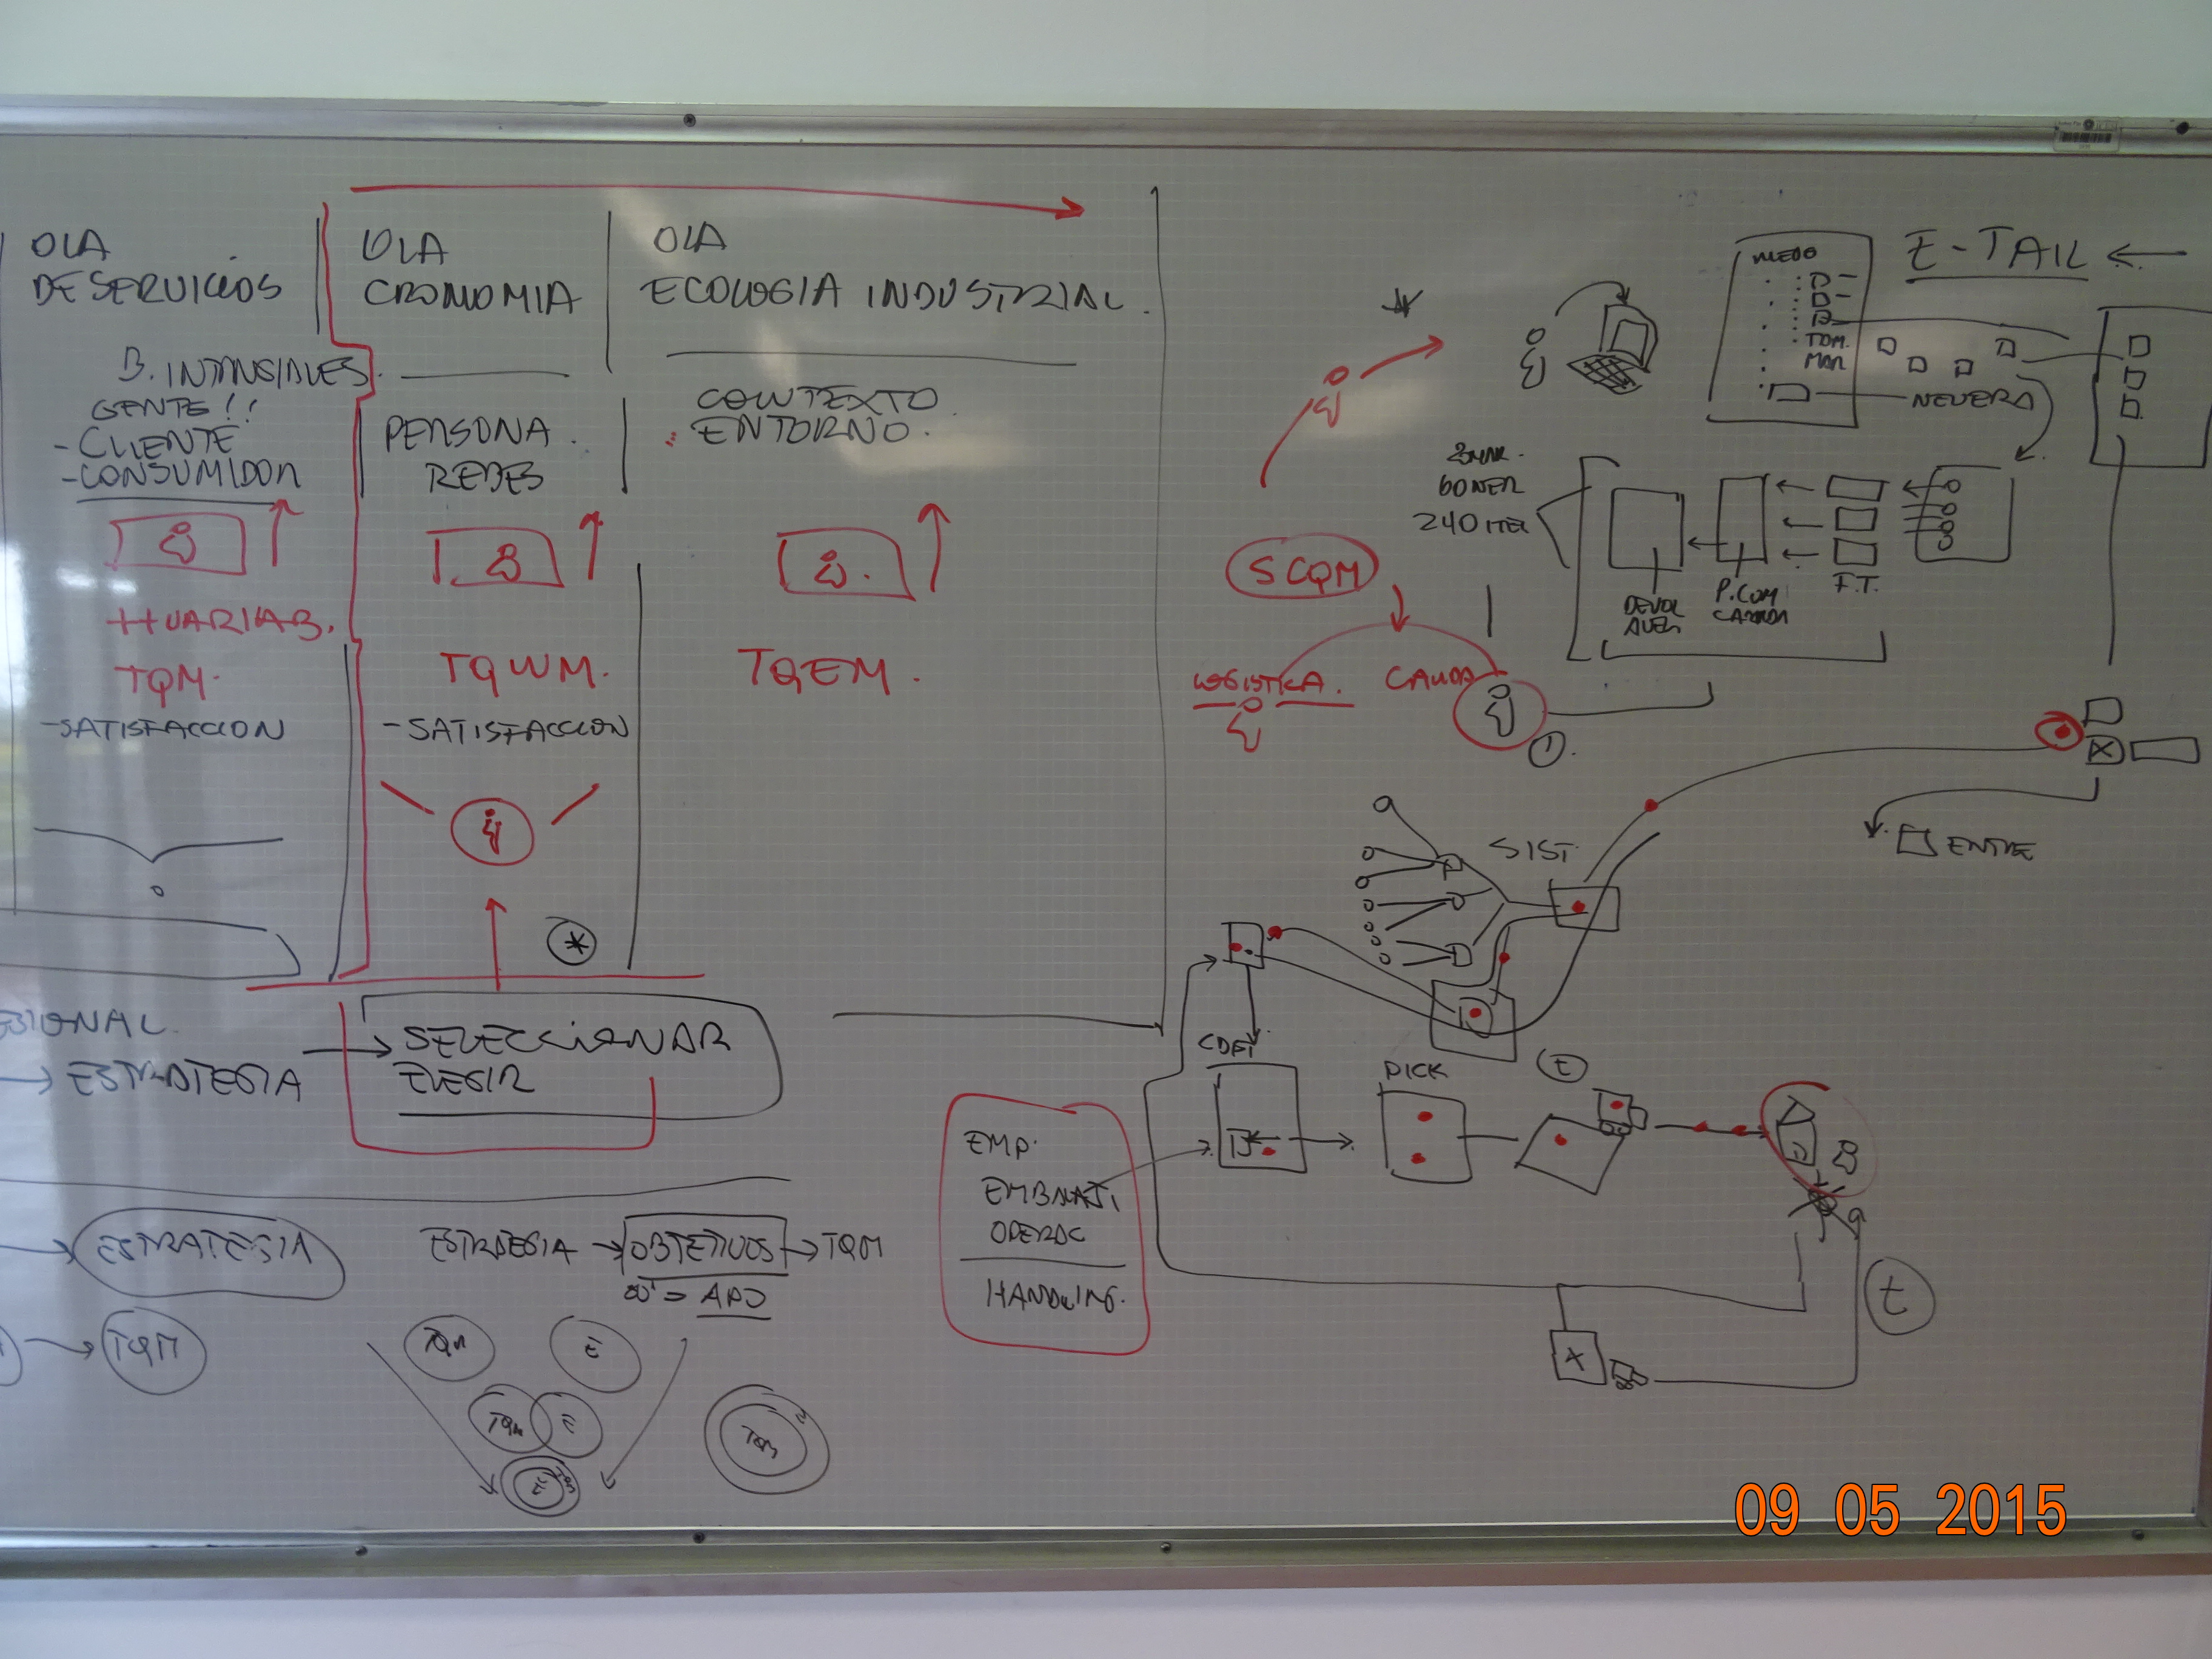 OLA
DE SERVICIOS
B. INTANGIBLES
GENTE!!
- CLIENTE
- CONSUMIDOR
++ VARIAB.
TQM.
- SATISFACCION
OLA
CRONOMIA
PERSONA.
REDES
TQWM.
- SATISFACCION
OLA
ECOLOGIA INDUSTRIAL.
CONTEXTO.
ENTORNO.
TQEM.
ESTRATEGIA
SELECCIONAR
ELEGIR
ESTRATEGIA
TQM
ESTRATEGIA → OBJETIVOS → TQM
TQM
E
TQM
E
E
TQM
E-TAIL
TOM.
MAR
NEVERA
60 NER
240 ITEL
P. COM
F.T.
SCQM
LOGISTICA.
1.
SIST.
ENTRE
PICK
t
EMP.
OPERAC
HANDLING.
X
t
09 05 2015